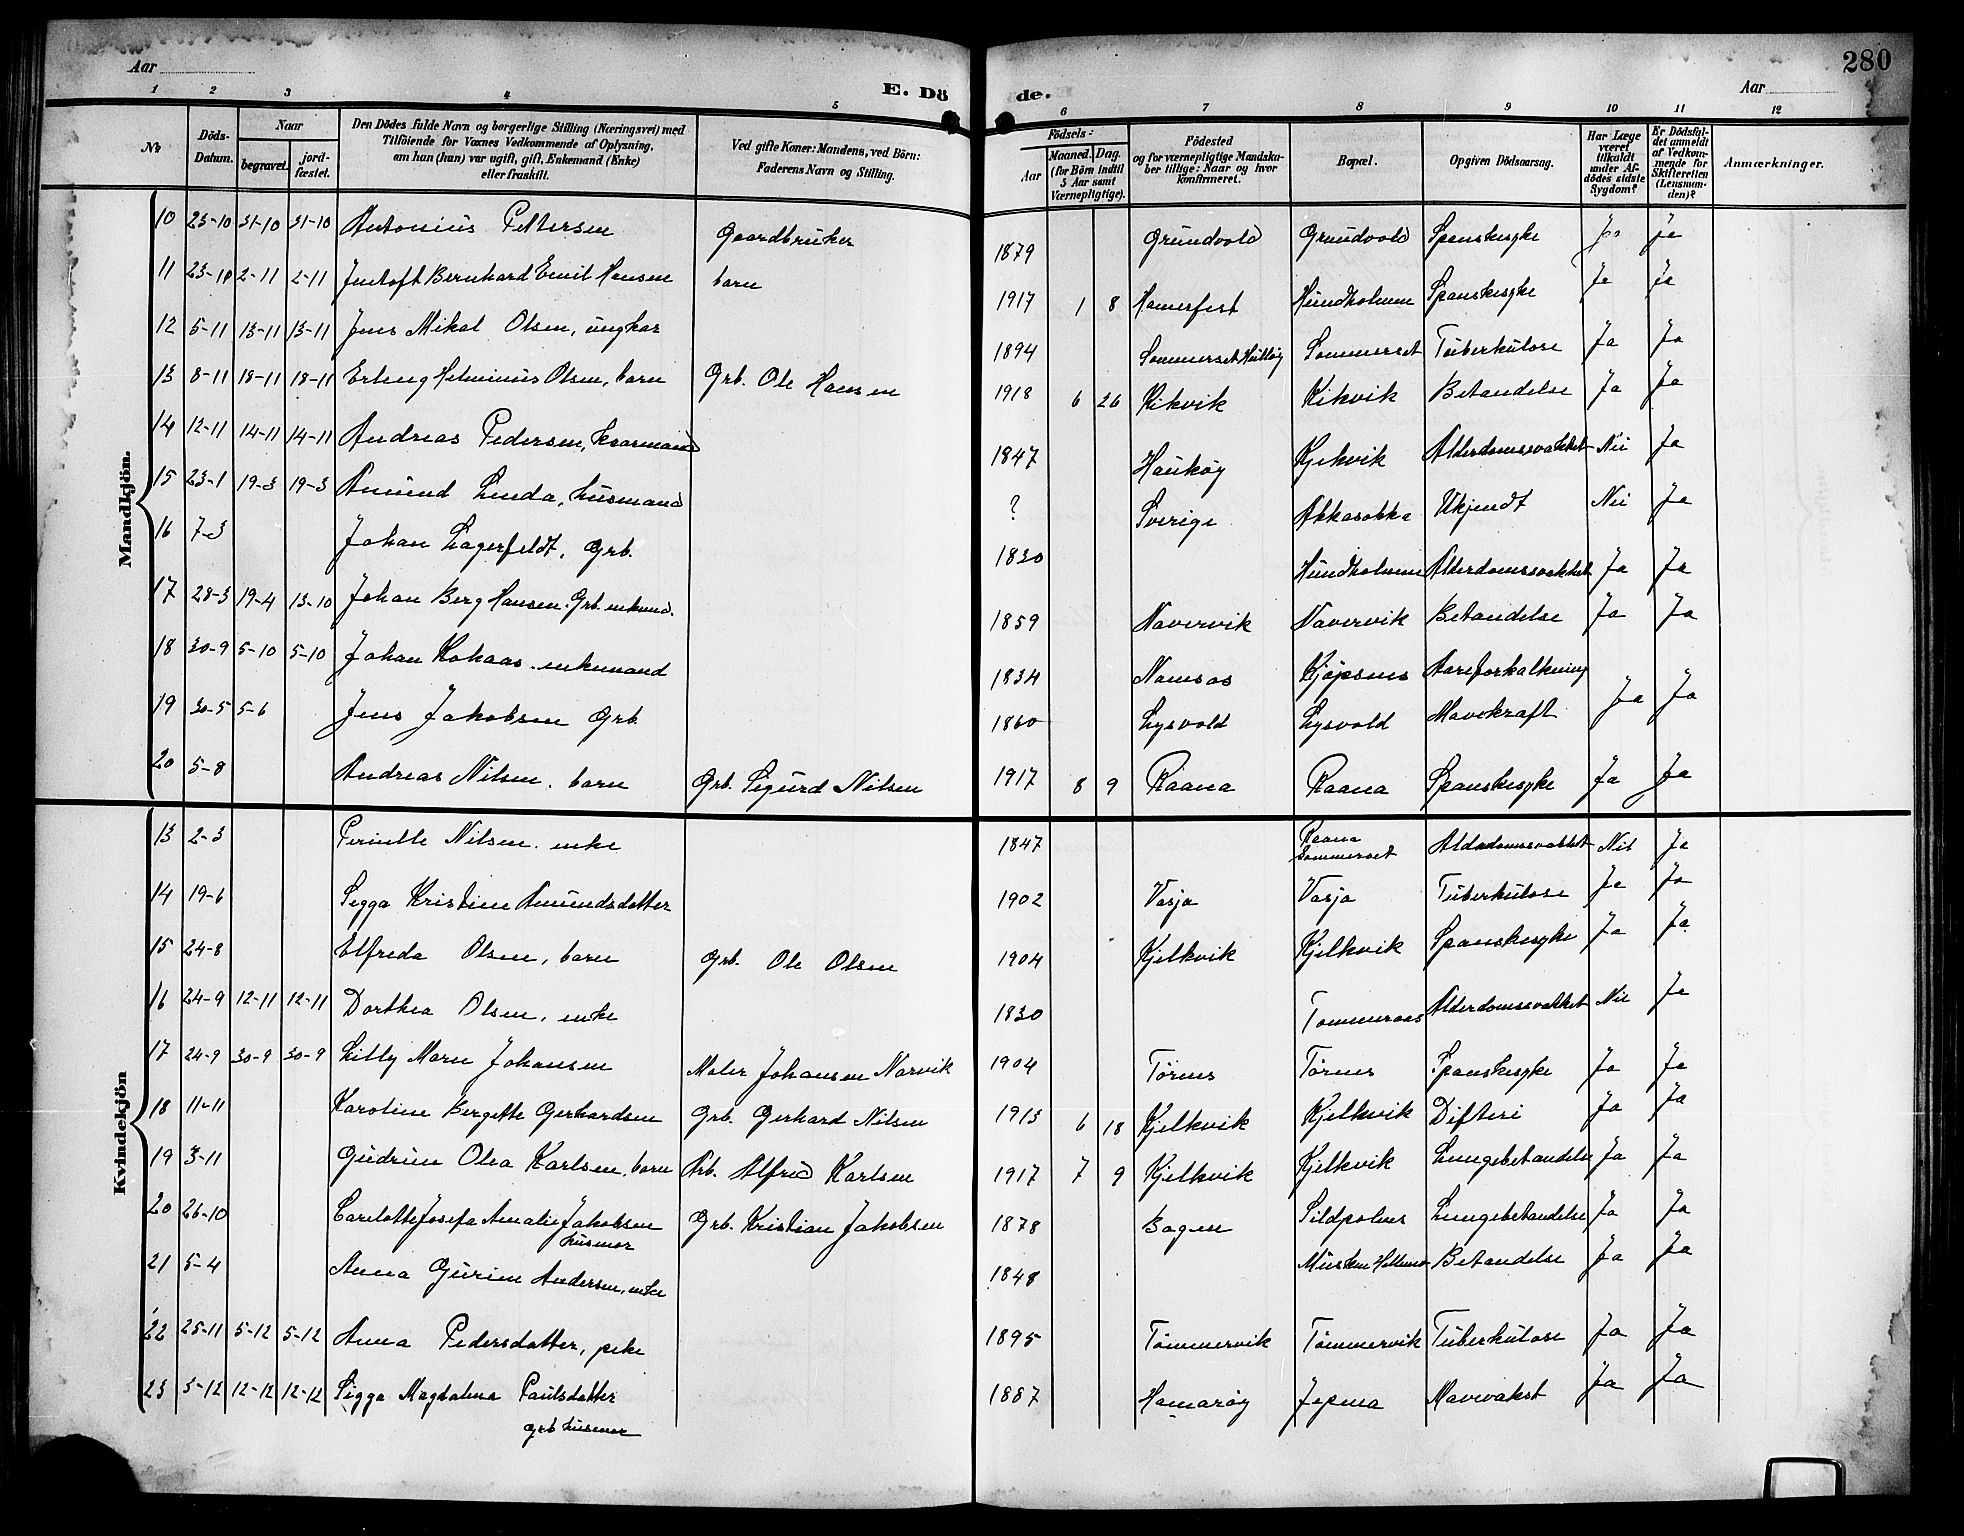 280
Aar
E. Dö de.
Aar
1 2 3 4 5 6 7 8 9 10 11 12
№
Döds-Datum.
Naar
begravet.
jord-fæstet.
Den Dödes fulde Navn og borgerlige Stilling (Næringsvei) med
Tilföiende for Voxnes Vedkommende af Oplysning,
om hun (han) var ugift, gift, Enkemand (Enke)
eller fraskilt.
Ved gifte Koner: Mandens, ved Börn:
Faderens Navn og Stilling.
Födsels:
Aar
Maaned. Dag.
(for Börn indtil
5 Aar samt
Værnepligtige).
Födested
og for værnepligtige Mandska-
ber tillige: Naar og hvor
konfirmeret.
Bopæl.
Opgiven Dödsaarsag.
Har Læge
været
tilkaldt
under Af-
dödes sidste
Sygdom?
Er Dödsfal-
det anmeldt
af Vedkom-
mende for
Skifteretten
(Lensman-
den)?
Anmærkninger.
Mandkjön.
10 23-10 31-10 31-10 Antonius Pettersen Gaardbruker 1879 Grundvold Grundvold Spanskesyke Ja Ja
11 23-10 2-11 2-11 Jentoft Bernhard Emil Hansen barn 1917 1 8 Hamerfest Hundholmen Spanskesyke Ja Ja
12 5-11 13-11 13-11 Jens Mikal Olsen, ungkar 1894 Sommerset Sommerset Tuberkulose Ja Ja
13 8-11 18-11 18-11 Erling Helminius Olsen, barn Grb. Ole Hansen 1918 6 26 Kikvik Kikvik Betændelse Ja Ja
14 12-11 14-11 14-11 Andreas Pedersen, 1847 Haukøy Kjelkvik Alderdomssvakhet Nei Ja
15 23-1 19-3 19-3 Amund Linda, husmand ? Sverige Ukjendt Nei Ja
16 7-3 Johan Lagerfeldt, Grb. 1830 Hundholmen Alderdomssvakhet Ja Ja
17 28-3 19-4 13-10 Johan Berg Hansen. Grb. enkem. 1859 Navervik Navervik Betændelse Ja Ja
18 30-9 5-10 5-10 Johan Kohaas. enkemand 1834 Namsos Kjøpsnes Aareforkalkning
19 30-5 5-6 Jens Jakobsen Grb 1860 Lysvold Lysvold Mavekræft Ja Ja
20 5-8 Andreas Nilsen. barn Grb. Sigurd Nilsen 1917 8 9 Raana Raana Spanskesyke Ja Ja
Kvindekjön
13 2-3 Pernelle Nilsen. enke 1847 Raana Sommerset Alderdomssvakhet Nei Ja
14 19-6 Sigga Kristine Amundsdatter 1902 Vasja Vasja Tuberkulose Ja Ja
15 24-8 Elfreda Olsen, barn Grb. Ole Olsen 1904 Kjelkvik Kjelkvik Spanskesyke Ja Ja
16 24-9 12-11 12-11 Dorthea Olsen, enke 1830 Tømmeraas Alderdomssvakhet Nei Ja
17 24-9 30-9 30-9 Lilly Marie Johansen Maler Johansen Narvik 1904 Tørnes Tørnes Spanskesyke Ja Ja
18 11-11 Karoline Bergette Gerhardsen Grb. Gerhard Nilsen 1913 6 18 Kjelkvik Kjelkvik Difteri Ja Ja
19 3-11 Gudrun Olea Karlsen, barn Arb. Alfred Karlsen 1917 7 9 Kjelkvik Kjelkvik Lungebetændelse Ja Ja
20 26-10 Carelotte Josefa Amalie Jakobsen Grb. Kristian Jakobsen 1878 Bogen Sildpolnes Lungebetændelse Ja Ja
husmor
21 5-4 Anna Gurine Andersen, enke 1848 Musken Hellemo Betændelse Ja Ja
22 25-11 5-12 5-12 Anna Pedersdatter, pike 1895 Tømmervik Tømmervik Tuberkulose Ja Ja
23 3-12 12-12 12-12 Sigga Magdalena Paulsdatter 1887 Hamarøy Jepma Ja Ja
grb husmor